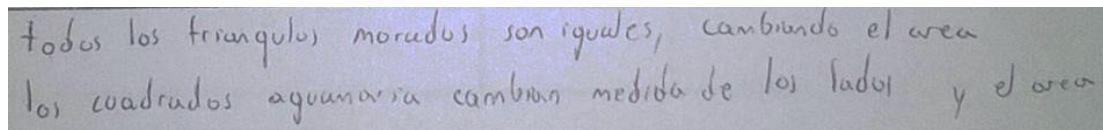 todos los triangulos morados son iguales, cambiando el area
los cuadrados aguamaria cambian medida de los lados y el area